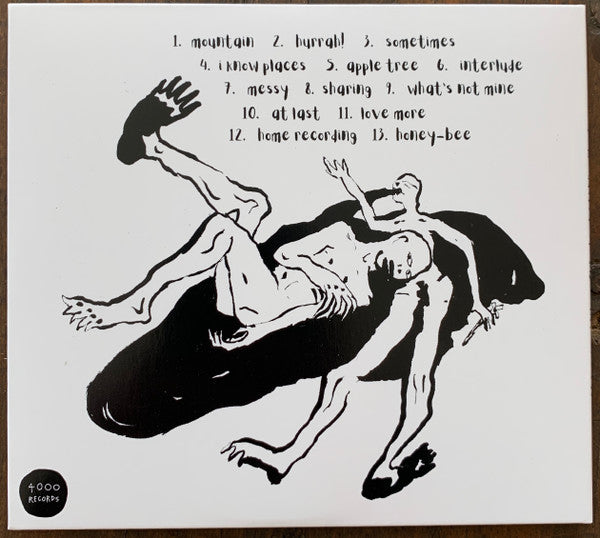 1. mountain 2. hurrah! 3. sometimes
4. i know places 5. apple tree 6. interlude
7. messy 8. sharing 9. what's not mine
10. at last 11. love more
12. home recording 13. honey-bee
4000
RECORDS